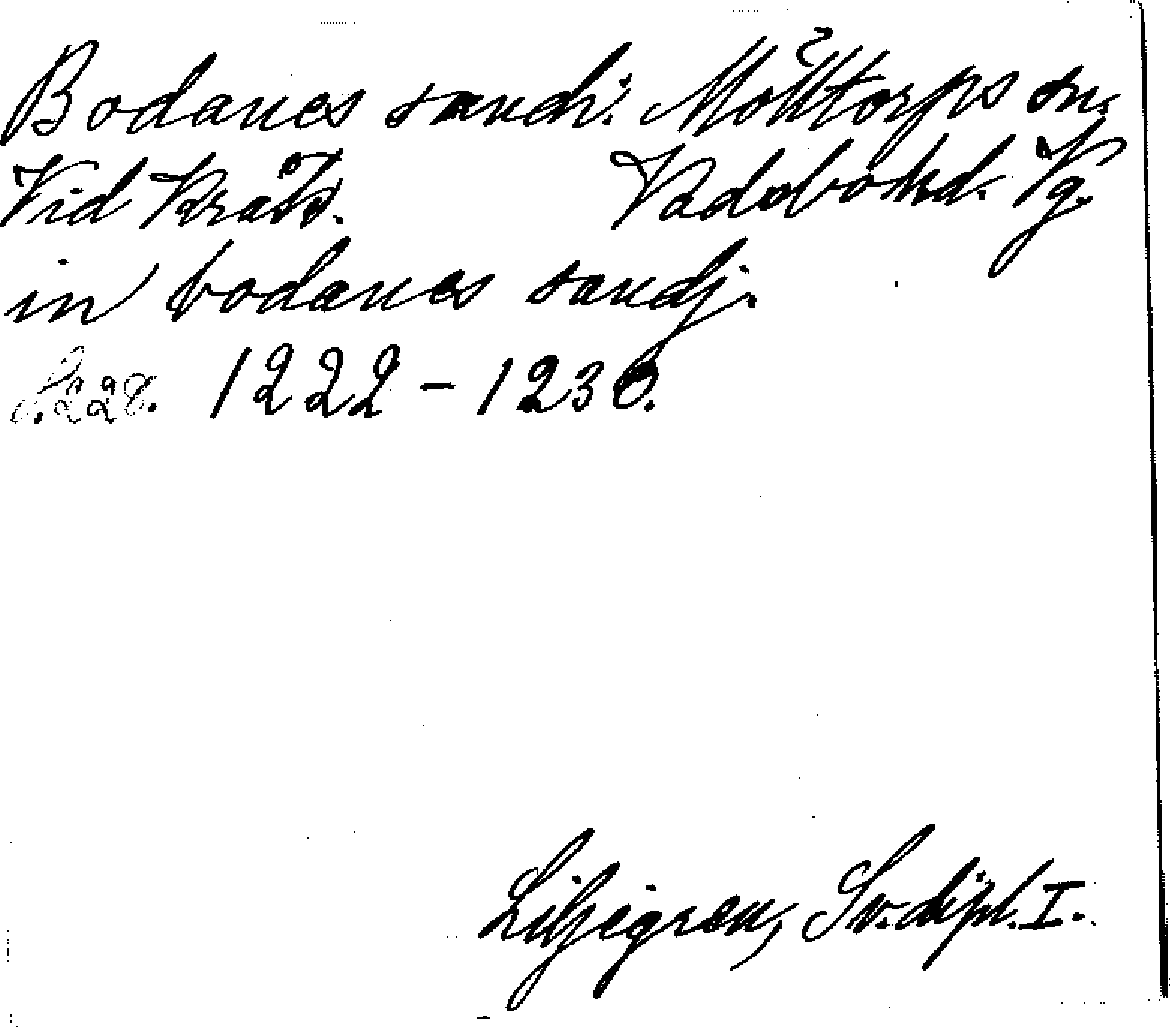 Bodanes sandi. Möltorps sn.
Vid Kråk. Vadsbohd. Vg.
in bodanes sandj.
s. 228. 1222-1230.
Liljegren, Sv. dipl. I.